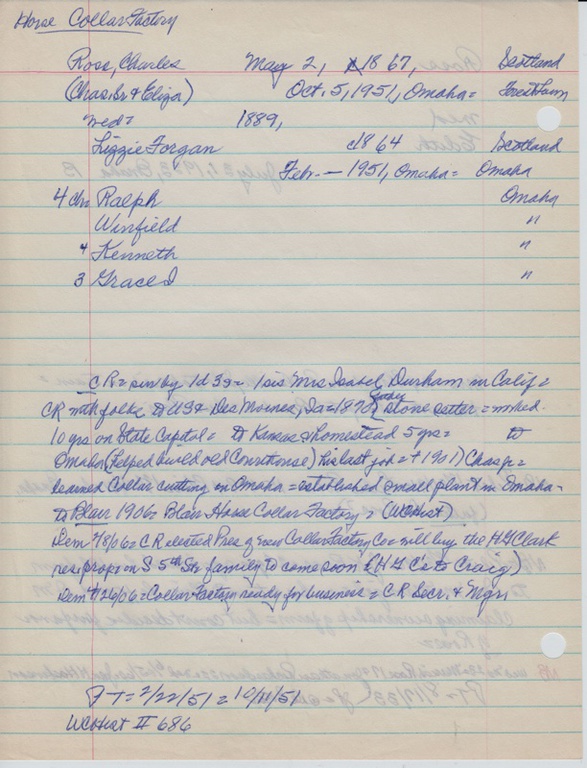 Horse Collar Factory
Ross, Charles May 2, 1867, Scotland
(Chas. Sr & Eliza) Oct. 5, 1951, Omaha = Forest Lawn
med = 1889,
Lizzie Forgan c1864 Scotland
Feb. — 1951, Omaha = Omaha
4 chn Ralph Omaha
Winfield "
4 Kenneth "
3 Grace I "
CR = surv by 1d 3s = 1 sis Mrs Isabel Durham in Calif =
CR with folks to US & Des Moines, Ia = 1870 (father stone setter = worked
10 yrs on State Capitol = to Kansas & homestead 5 yrs = to
Omaha (helped build old Courthouse) his last job = + 1901) Chas Jr =
learned Collar cutting in Omaha = established small plant in Omaha -
to Blair 1906 = Blair Horse Collar Factory = (WCHist)
Dem 4/8/06 = CR elected Pres of new Collar Factory Co = will buy the HG Clark
res prop on S 5th St = family to come soon = (HG C's to Craig)
Dem 4/26/06 = Collar Factory ready for business = CR Secr. & Mgr.
PT = 2/22/51 = 10/11/51
WCHist II 686